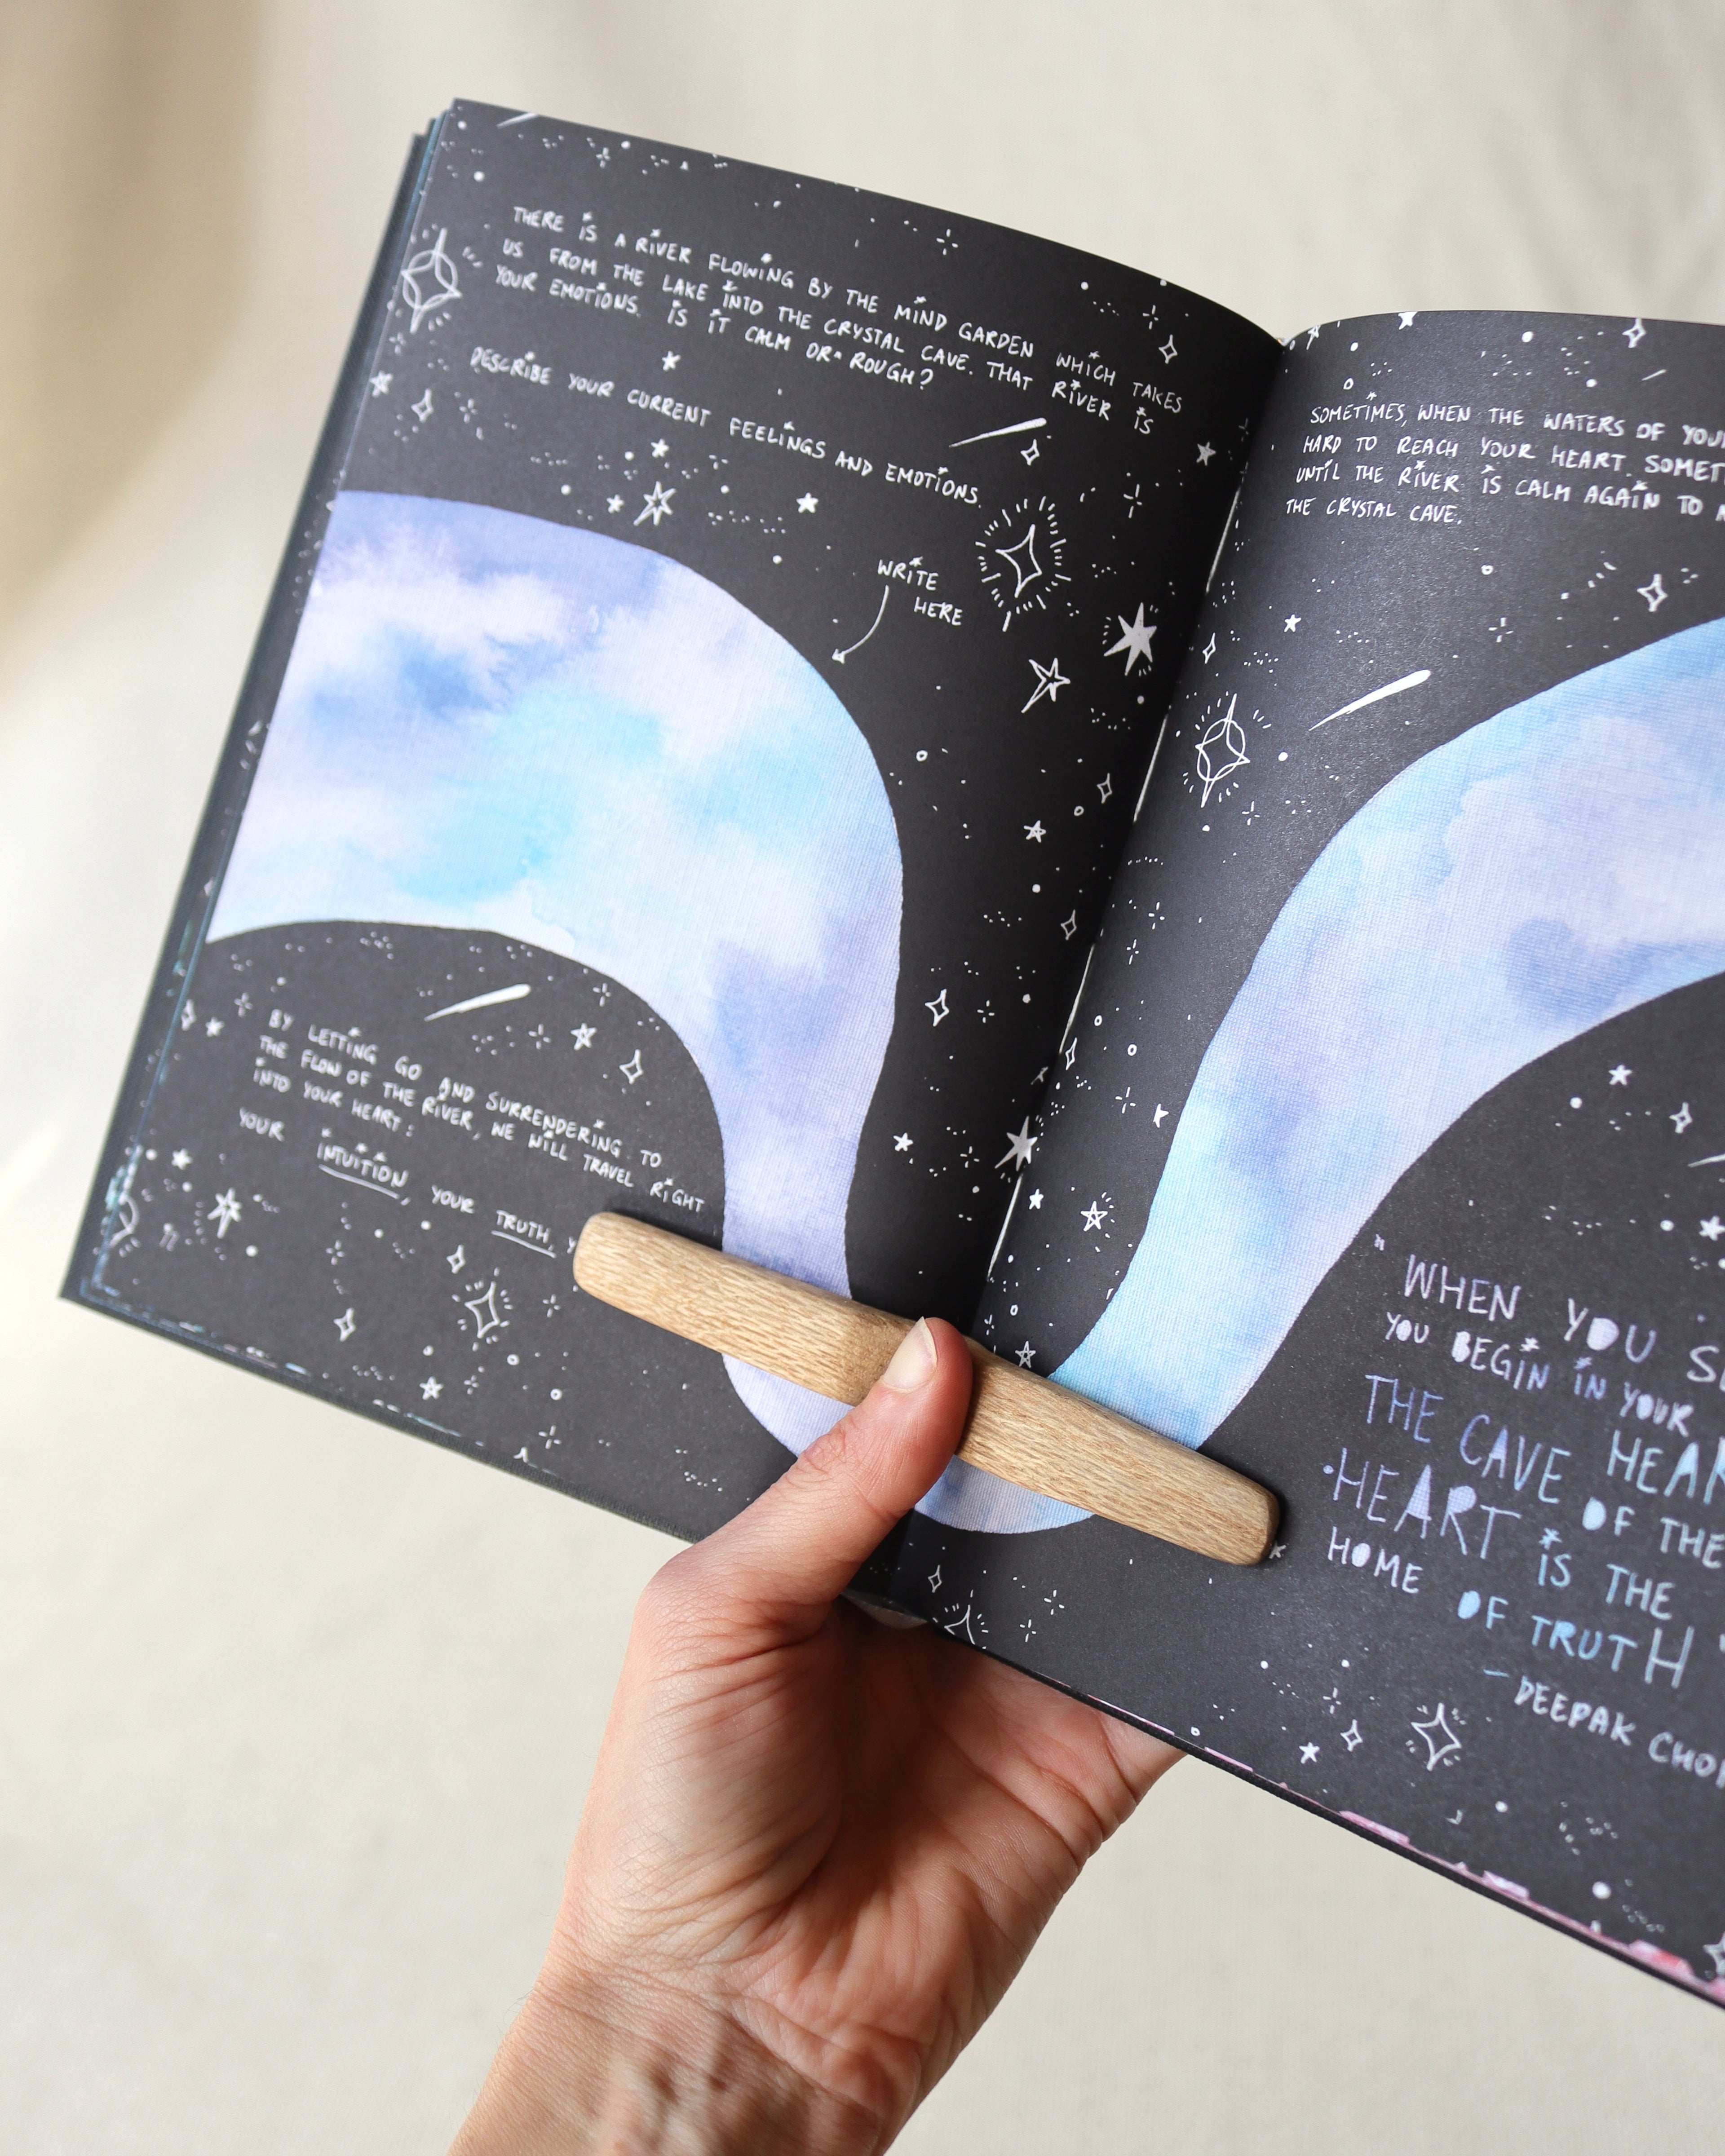 THERE IS A RIVER FLOWING BY THE MIND GARDEN WHICH TAKES
US FROM THE LAKE INTO THE CRYSTAL CAVE. THAT RIVER IS
YOUR EMOTIONS. IS IT CALM OR ROUGH?
DESCRIBE YOUR CURRENT FEELINGS AND EMOTIONS.
WRITE
HERE
BY LETTING GO AND SURRENDERING TO
THE FLOW OF THE RIVER, WE WILL TRAVEL RIGHT
INTO YOUR HEART:
YOUR INTUITION, YOUR TRUTH,
SOMETIMES, WHEN THE WATERS OF
HARD TO REACH YOUR HEART.
UNTIL THE RIVER IS CALM AGAIN TO
THE CRYSTAL CAVE.
"WHEN YOU
YOU BEGIN IN YOUR
THE CAVE OF THE
HEART IS THE
HOME OF TRUTH"
- DEEPAK